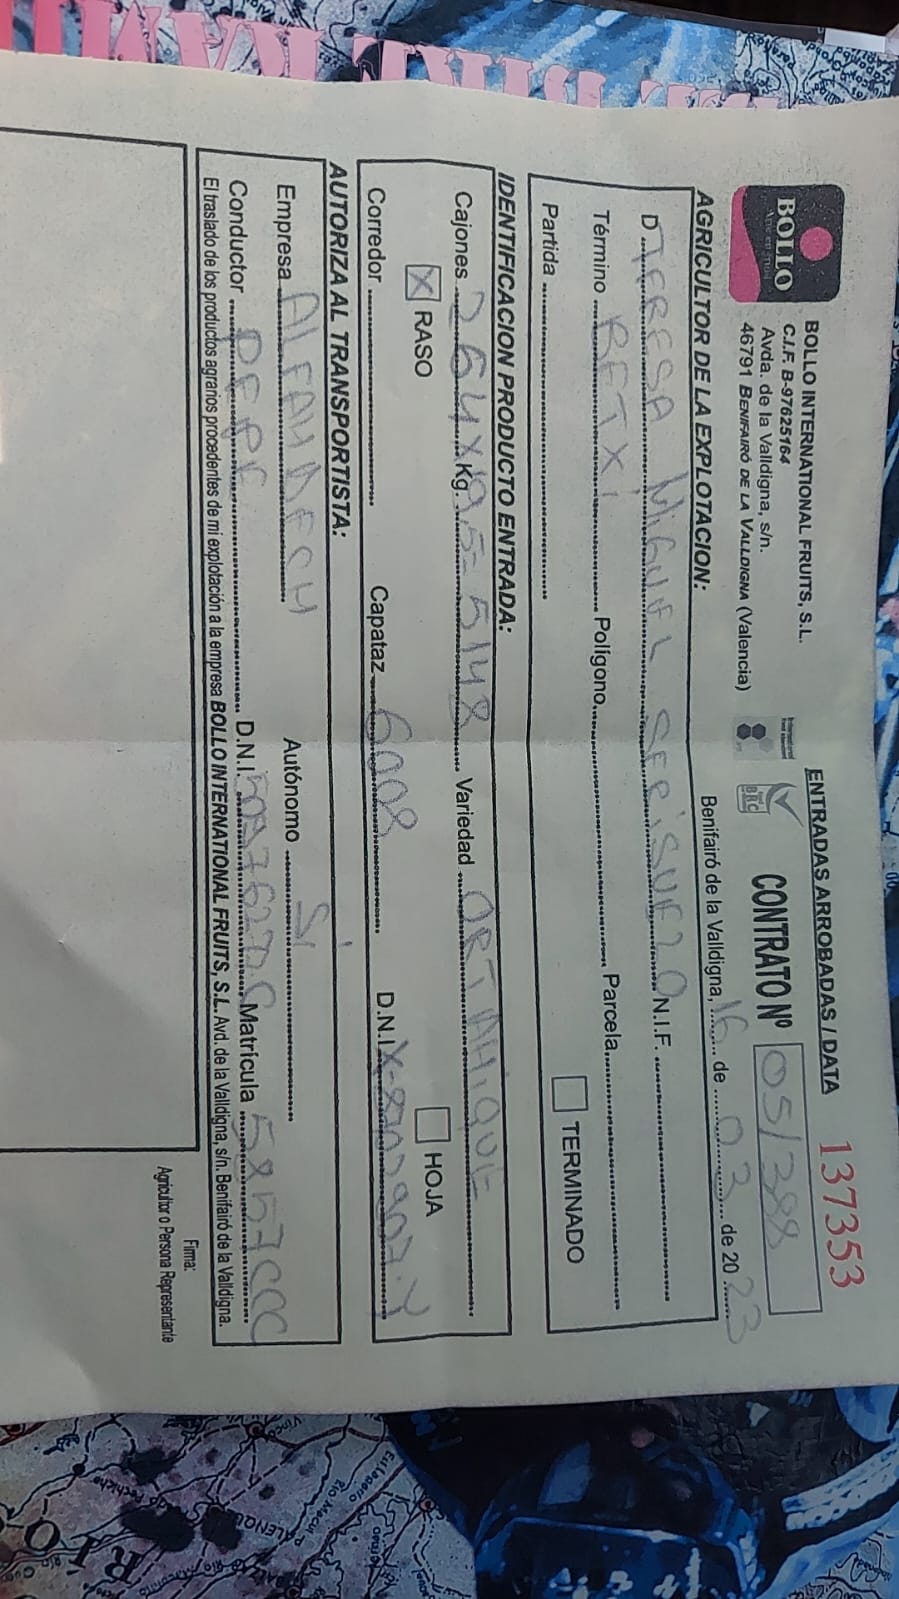 ENTRADAS ARROBADAS / DATA 137353
BOLLO
BOLLO INTERNATIONAL FRUITS, S.L.
C.I.F. B-97625164
Avda. de la Valldigna, s/n.
46791 BENIFAIRÓ DE LA VALLDIGNA (Valencia)
BRC
CONTRATO Nº 05/388
Benifairó de la Valldigna, 16 de 03 de 2023
AGRICULTOR DE LA EXPLOTACION:
D TERESA MIGUEL SERISUELO N.I.F.
Término BETXI Polígono Parcela
TERMINADO
Partida
IDENTIFICACION PRODUCTO ENTRADA:
Cajones 264 X Kg. 19.5 = 5148 Variedad ORTANIQUE
X RASO HOJA
Corredor Capataz 6008 D.N.I. X-8702907-Y
AUTORIZA AL TRANSPORTISTA:
Empresa ALFAHDECH Autónomo Si
Conductor PEPE D.N.I. Matrícula 5857CCC
El traslado de los productos agrarios procedentes de mi explotación a la empresa BOLLO INTERNATIONAL FRUITS, S.L. Avd. de la Valldigna, s/n. Benifairó de la Valldigna.
Firma:
Agricultor o Persona Representante